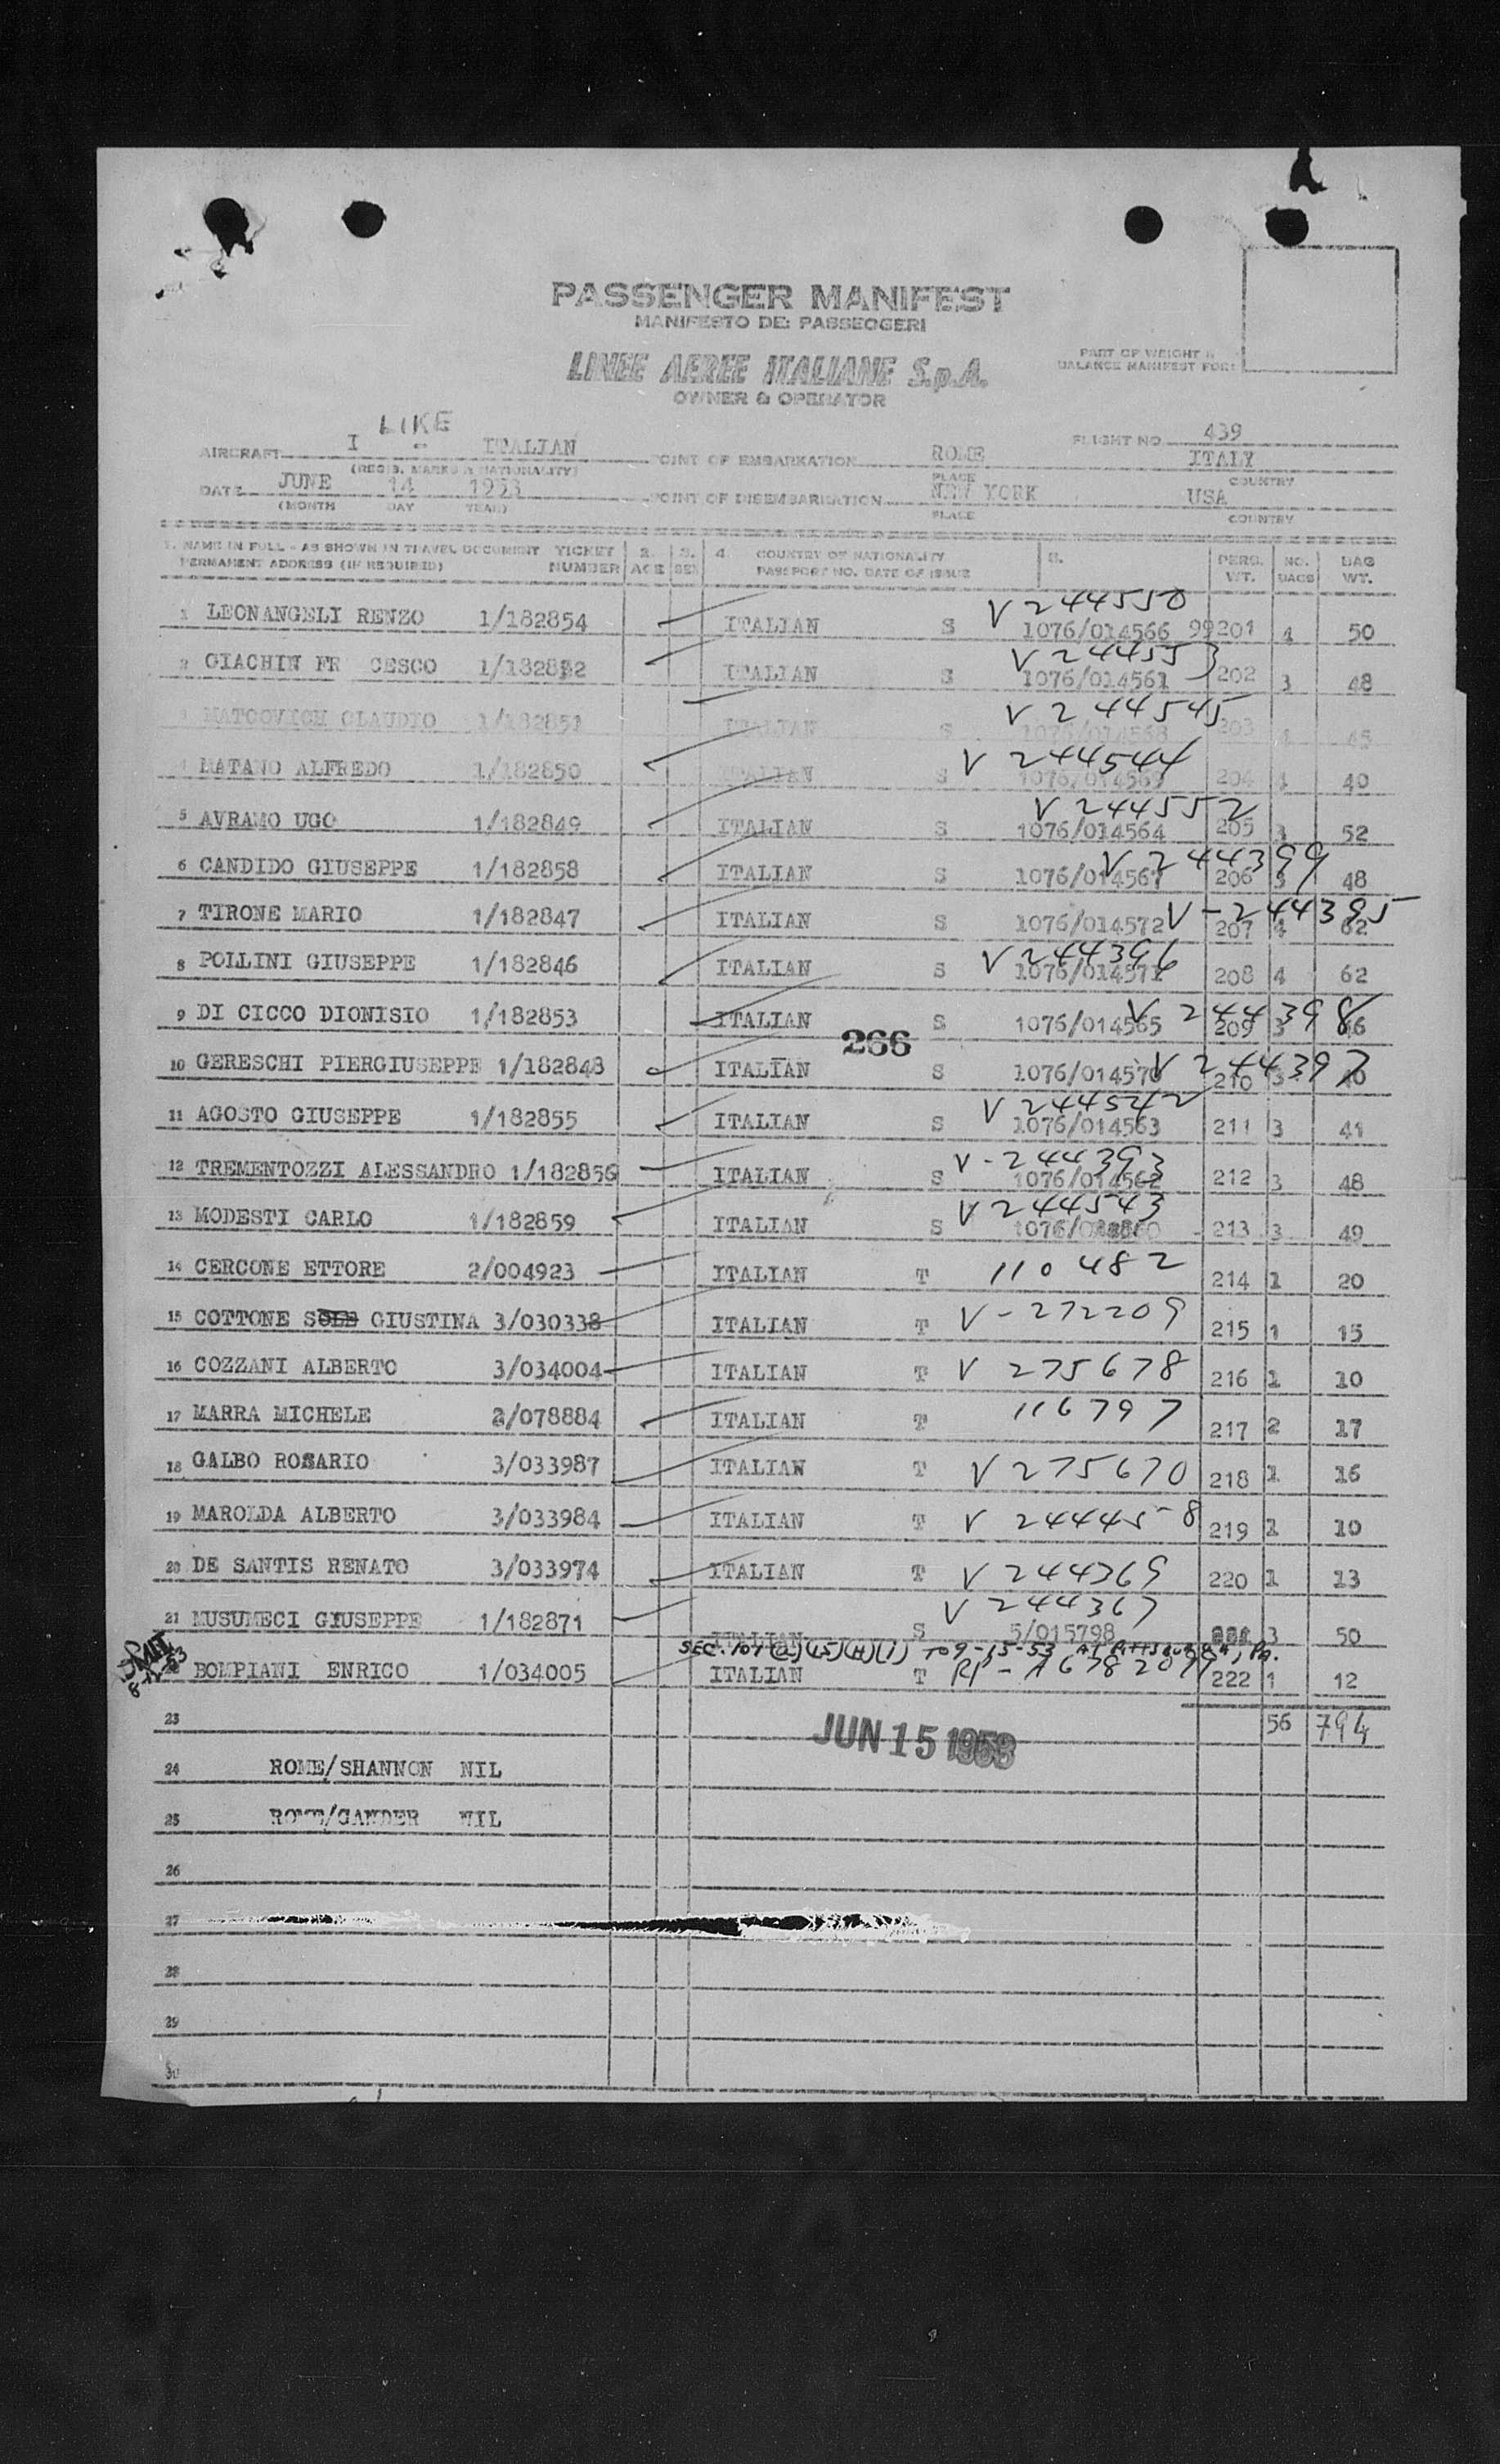 PASSENGER MANIFEST
MANIFESTO DEI PASSEGGERI
LINEE AEREE ITALIANE S.p.A.
OWNER & OPERATOR
PART OF WEIGHT &
BALANCE MANIFEST FOR:
LIKE
AIRCRAFT I - ITALIAN POINT OF EMBARKATION ROME ITALY FLIGHT NO. 439
(REGIS. MARKS & NATIONALITY) PLACE COUNTRY
DATE JUNE 14 1953 POINT OF DISEMBARKATION NEW YORK USA
(MONTH DAY YEAR) PLACE COUNTRY
1. NAME IN FULL - AS SHOWN IN TRAVEL DOCUMENT TICKET 2. 3. 4. COUNTRY OF NATIONALITY 5. PERS. NO. BAG
PERMANENT ADDRESS (IF REQUIRED) NUMBER AGE SEX PASSPORT NO. DATE OF ISSUE WT. BAGS WT.
V 244550
1 LEONANGELI RENZO 1/182854 ITALIAN S 1076/014566 99 201 4 50
V 244553
2 GIACHIN FR CESCO 1/182852 ITALIAN S 1076/014561 202 3 48
V 244545
3 MATCOVICH CLAUDIO 1/182851 ITALIAN S 1076/014568 203 4 45
V 244544
4 MATANO ALFREDO 1/182850 ITALIAN S 1076/014569 204 4 40
V 244552
5 AVRAMO UGO 1/182849 ITALIAN S 1076/014564 205 3 52
V 244399
6 CANDIDO GIUSEPPE 1/182858 ITALIAN S 1076/014567 206 3 48
V-244395
7 TIRONE MARIO 1/182847 ITALIAN S 1076/014572 207 4 62
V 244396
8 POLLINI GIUSEPPE 1/182846 ITALIAN S 1076/014571 208 4 62
V 244398
9 DI CICCO DIONISIO 1/182853 ITALIAN S 1076/014565 209 3 46
266
V 244397
10 GERESCHI PIERGIUSEPPE 1/182848 ITALIAN S 1076/014570 210 3 40
V 244542
11 AGOSTO GIUSEPPE 1/182855 ITALIAN S 1076/014563 211 3 41
V-244393
12 TREMENTOZZI ALESSANDRO 1/182856 ITALIAN S 1076/014562 212 3 48
V 244543
13 MODESTI CARLO 1/182859 ITALIAN S 1076/ 213 3 49
14 CERCONE ETTORE 2/004923 ITALIAN T 110482 214 1 20
15 COTTONE SOLE GIUSTINA 3/030338 ITALIAN T V-272209 215 1 15
16 COZZANI ALBERTO 3/034004 ITALIAN T V 275678 216 1 10
17 MARRA MICHELE 2/078884 ITALIAN T 116797 217 2 17
18 GALBO ROSARIO 3/033987 ITALIAN T V 275670 218 1 16
19 MAROLDA ALBERTO 3/033984 ITALIAN T V 244458 219 1 10
20 DE SANTIS RENATO 3/033974 ITALIAN T V 244369 220 1 13
V 244367
21 MUSUMECI GIUSEPPE 1/182871 ITALIAN S 5/015798 221 3 50
SEC. 101 (a)(15)(H)(1) TO 9-15-53 AT PITTSBURGH, PA.
BOMPIANI ENRICO 1/034005 ITALIAN T 222 1 12
23 56 794
JUN 15 1953
24 ROME/SHANNON NIL
25 ROME/GANDER NIL
26
27
28
29
30